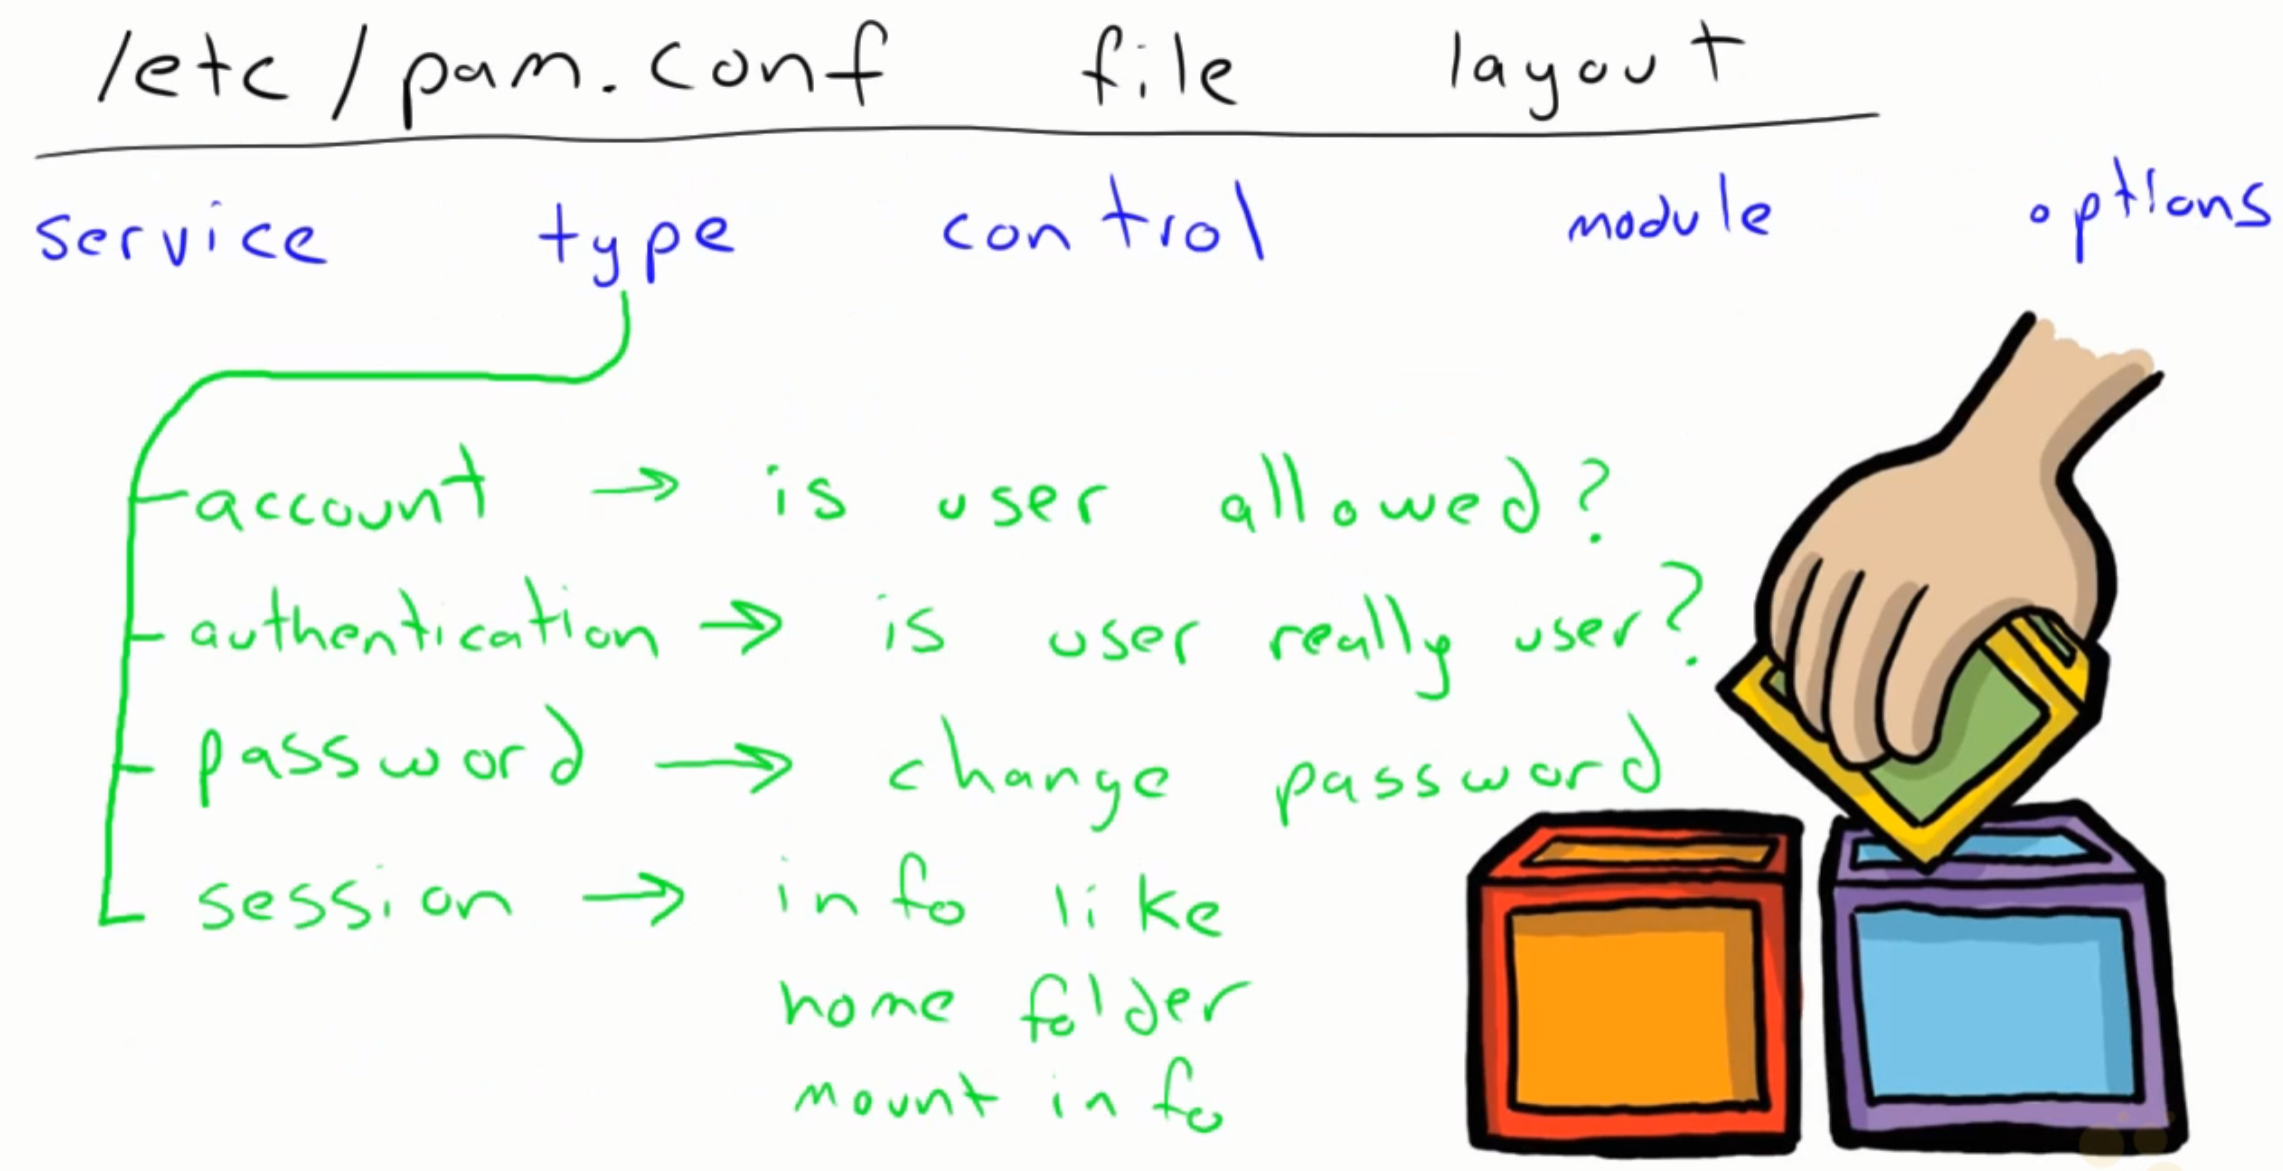 /etc/pam.conf file layout
service type control module options
account → is user allowed?
authentication → is user really user?
password → change password
session → info like
home folder
mount info